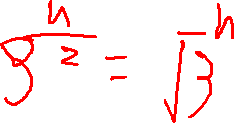 3^{n/2} = √3^n